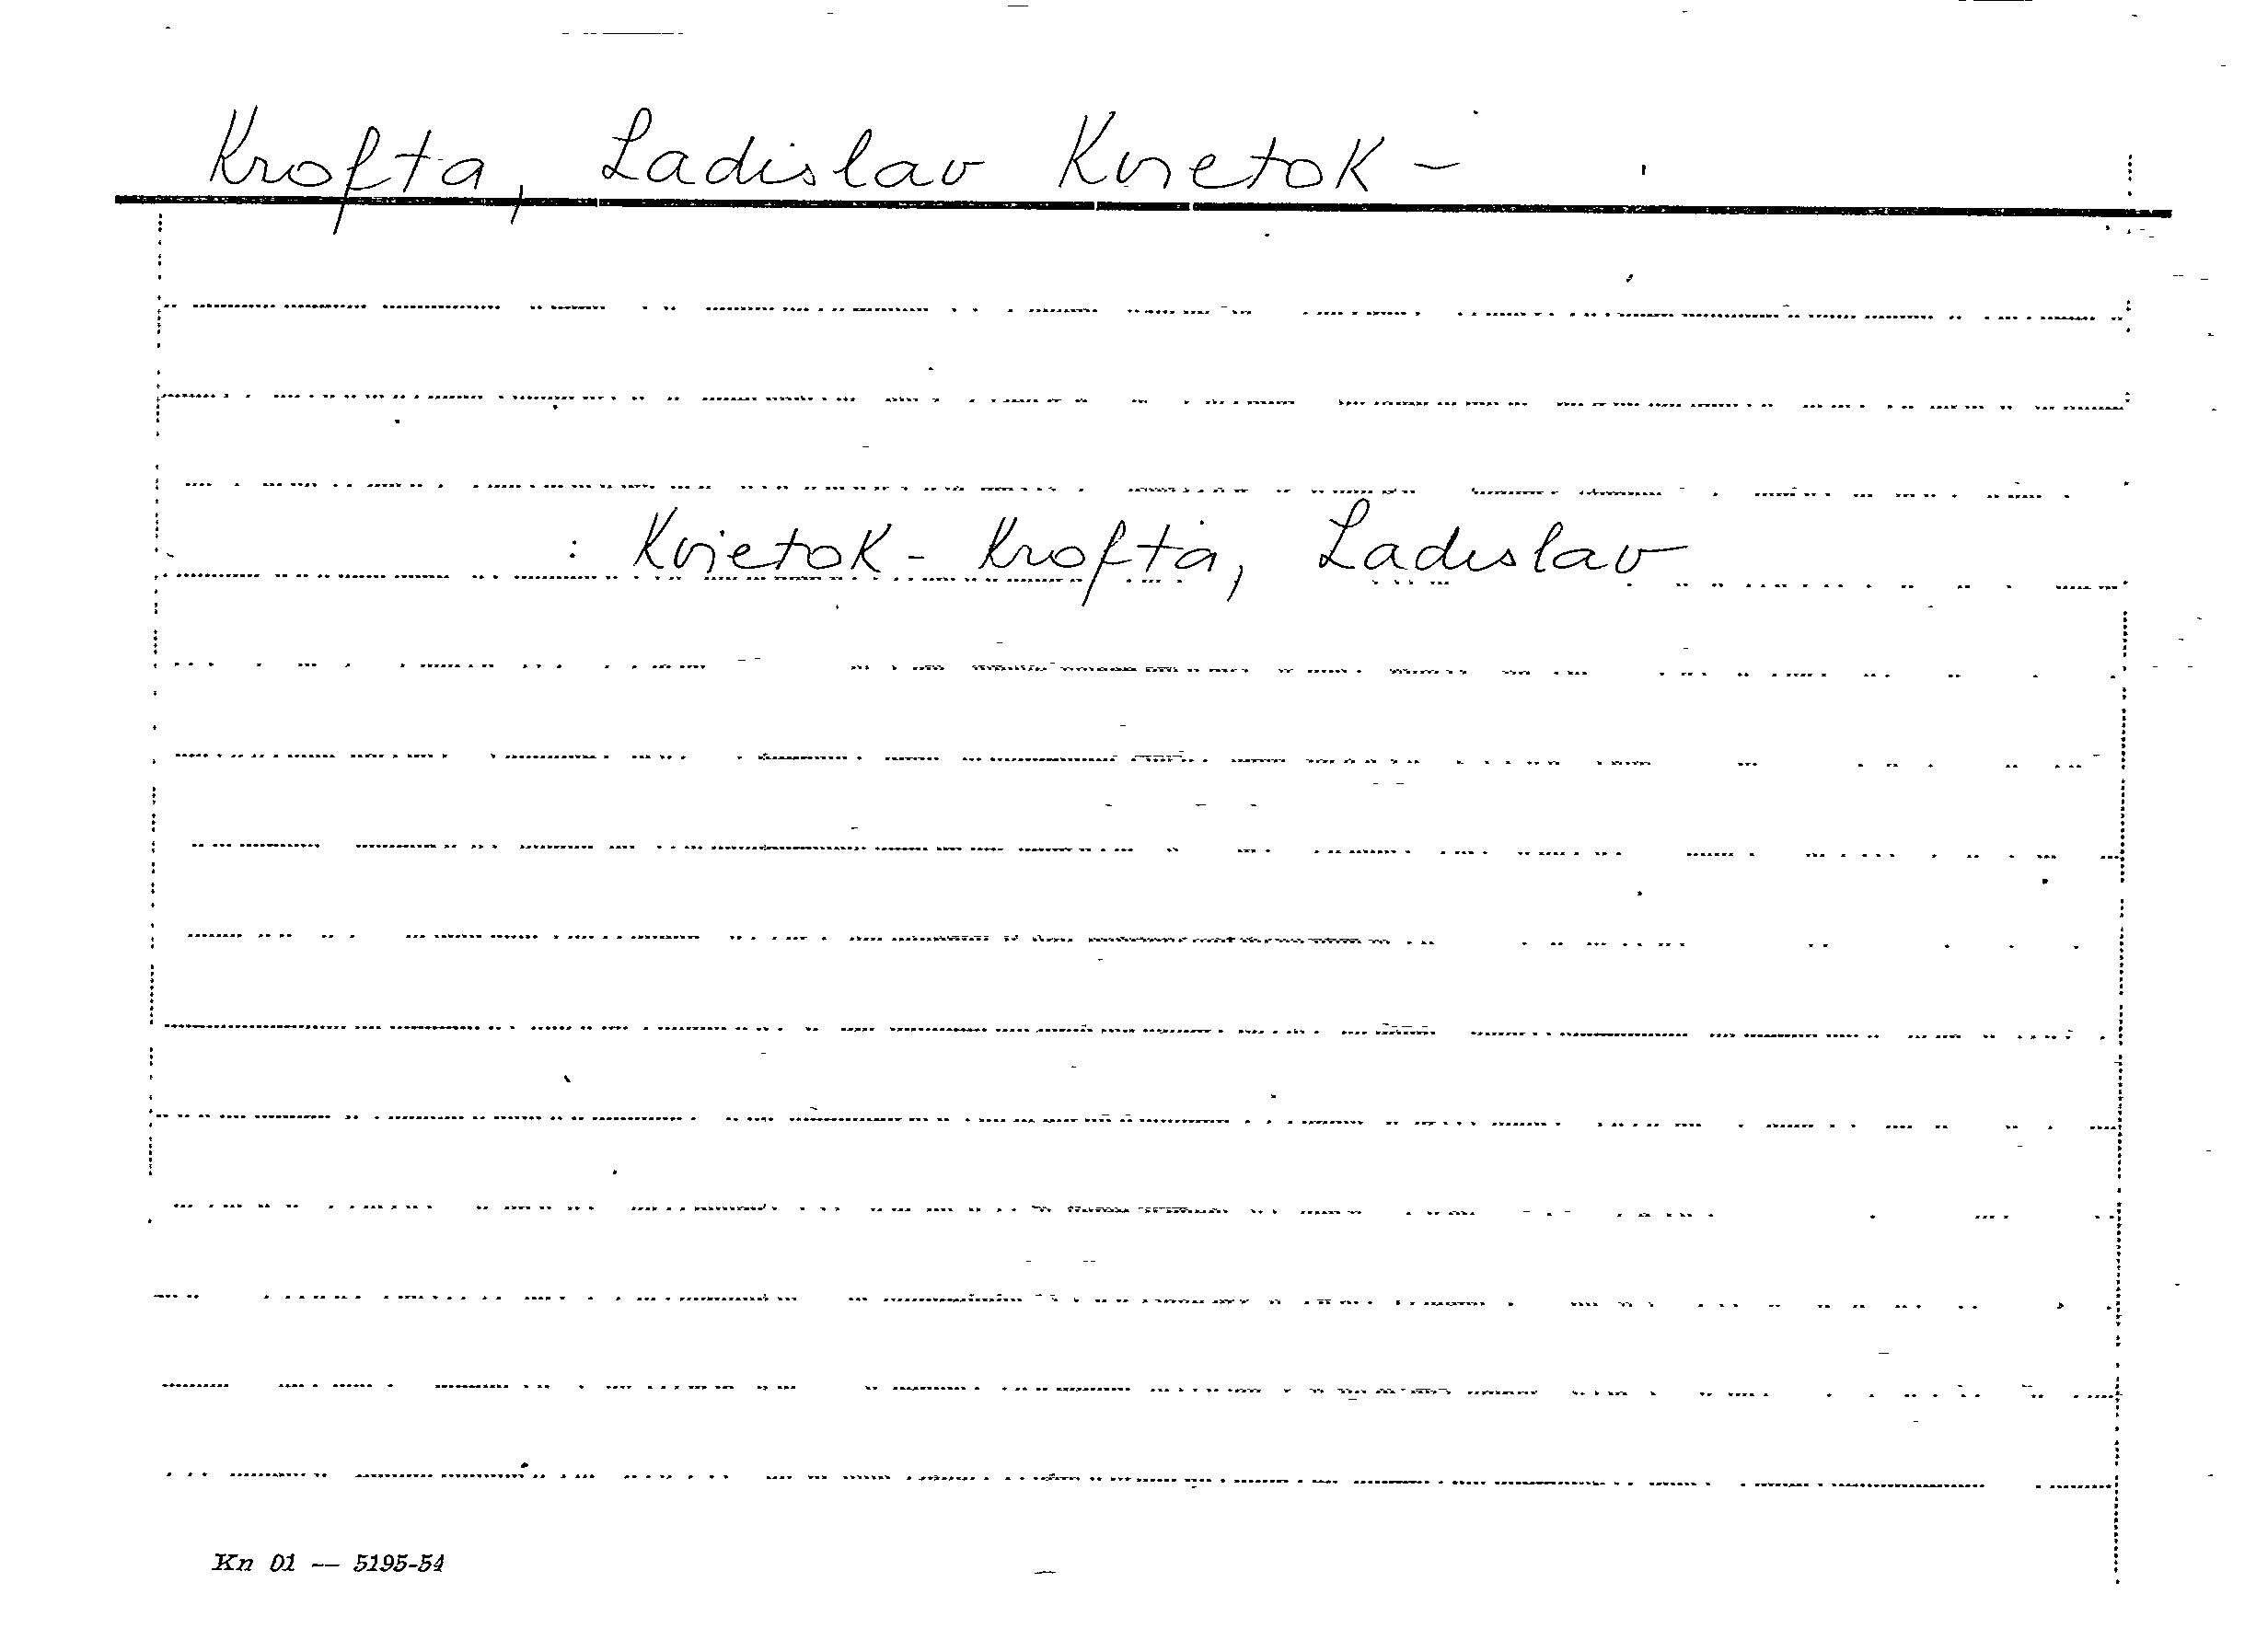 Krofta, Ladislav Kvietok -
: Kvietok - Krofta, Ladislav
Kn 01 -- 5195-54